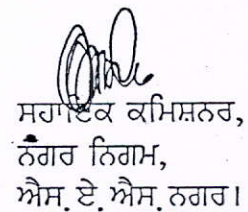 ਸਹਾਇਕ ਕਮਿਸ਼ਨਰ,
ਨਗਰ ਨਿਗਮ,
ਐਸ. ਏ. ਐਸ. ਨਗਰ।